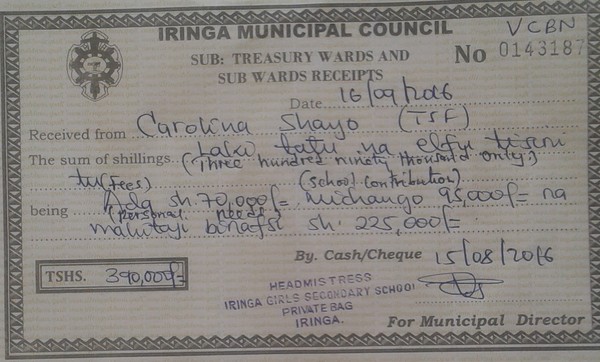 IRINGA MUNICIPAL COUNCIL
VCBN
SUB: TREASURY WARDS AND
SUB WARDS RECEIPTS
No 0143187
Date 16/09/2016
Received from Carolina Shayo (TSF)
Laki tatu na elfu tisini
The sum of shillings (Three hundred ninety thousand only)
tu (fees) (school contribution)
being Ada sh. 70,000/= michango 95,000/= na
(personal needs)
mahitaji binafsi sh. 225,000/=
By. Cash/Cheque 15/08/2016
TSHS. 390,000/=
HEADMISTRESS
IRINGA GIRLS SECONDARY SCHOOL
PRIVATE BAG
IRINGA.
For Municipal Director